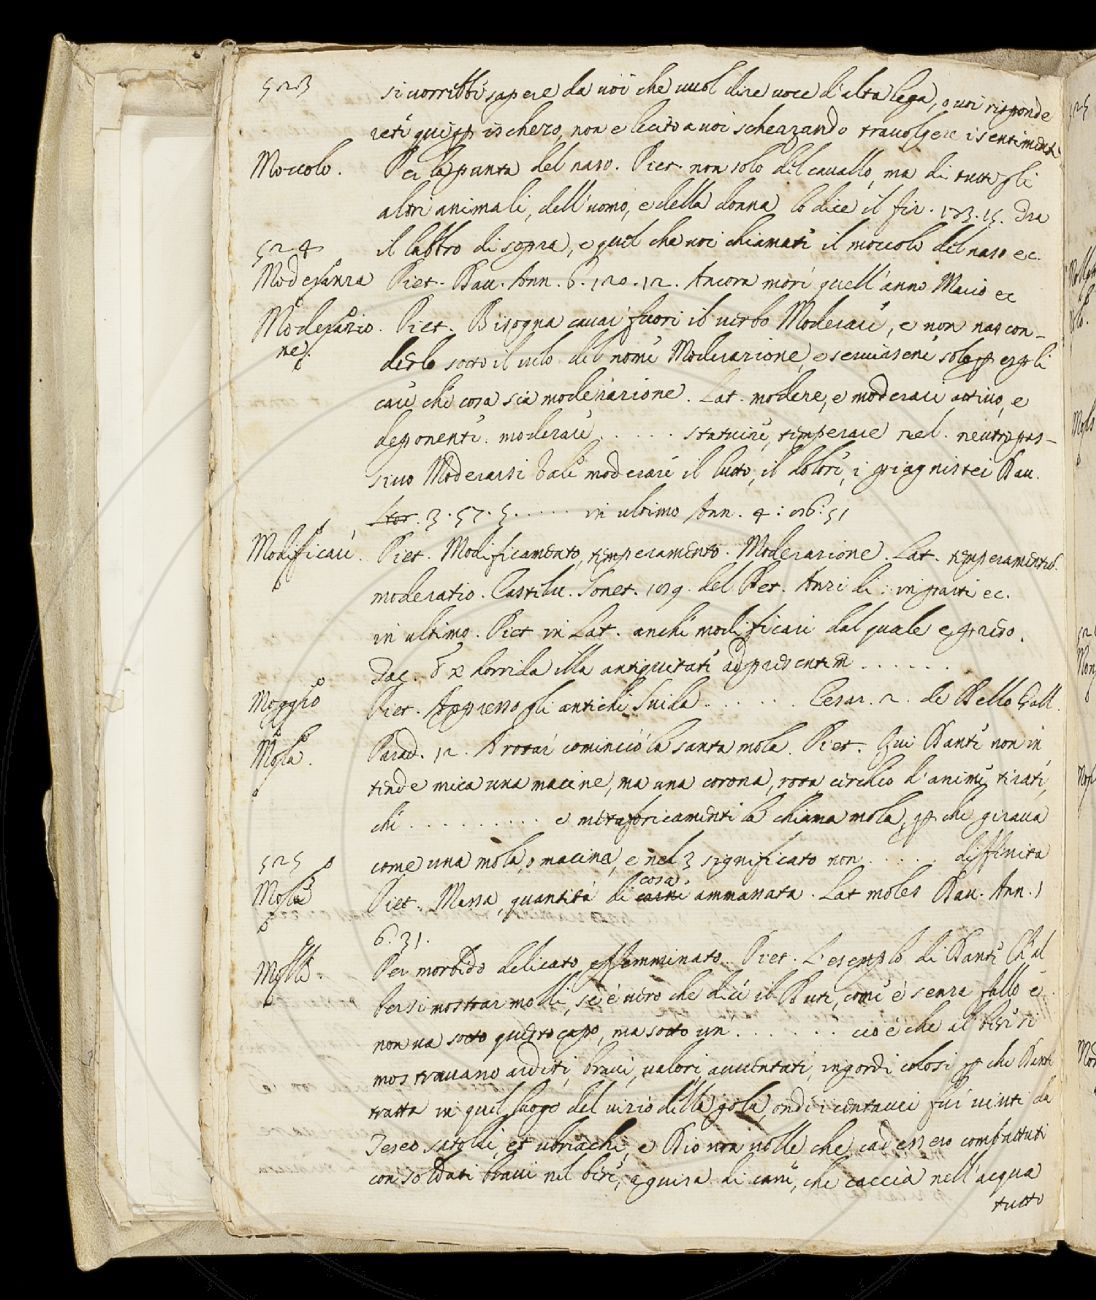 523 si vorrebbi sapere da voi che vuol dire voce d'alta lega, o voi risponde
reti qui per ischerzo, non e lecito a voi scherzando travolgere i sentimenti
Moccolo. Per la punta del naso. Piet. non solo del cavallo, ma di tutti gli
altri animali, dell'uomo, e della donna lo dice il fir. 173. 15. Dra
524 il labbro di sopra, e quel che voi chiamati il moccolo del naso ec.
Moderanza Piet. Dav. Ann. 6. 120. 12. Ancora morì quell'anno ec
Moderazio- Piet. Bisogna cavar fuori il verbo Moderari, e non nascon-
ne. derlo sotto il velo del nome Moderazione, e servirseni solo per espli
cari che cosa sia moderazione. Lat. modere, e moderari attivo, e
deponenti. moderari . . . . . statuiri, temperare nel. neutro pas-
sivo Moderarsi vale moderari il lutto, il dolori, i Dav.
Stor. 3. 57. 5. . . . . . in ultimo Ann. 4. 51
Modificari. Piet. Modificamento, temperamento. Moderazione. Lat.
moderatio. Castelv. Sonet. del Pet. Anzi li
in ultimo. Piet in Lat. anchi modificari dal quale
Tac. Ex horrida illa antiquitati ad praesentem . . . . . .
Moggio Piet. Appresso gli antichi Suida . . . . . . Cesar. 2. de Bello Gall.
Mola. Parad. 12. A rotar cominciò la santa mola. Piet. Qui Danti non in
tende mica una macine, ma una corona, rota cerchio d'animi tirati,
chi . . . . . . . . . . e metaforicamenti la chiama mola, per che girava
525 come una mola, o macina, e nel 3 significato non . . . . diffinita
Mole Piet. Massa, quantità di cosa ammassata. Lat moles Dav. Ann. 1
6. 31.
Molle. Per morbido delicato effemminato. Piet. L'esemplo di Danti Ch'al
ber si mostrar molli, se è vero che dici il Buti, comi è senza fallo e
non va sotto questo capo, ma sotto un . . . . . . ciò è che al beri si
mostravano arditi, bravi, valori avventati, ingordi colosi per che Danti
tratta in quel luogo del vizio della gola, ondi i centauri fur vinti da
Teseo satolli, et ubriachi, e Dio non volle che essero combattuti
con soldati bravi nel beri, a guisa di cani, che caccia nell'acqua
tutto